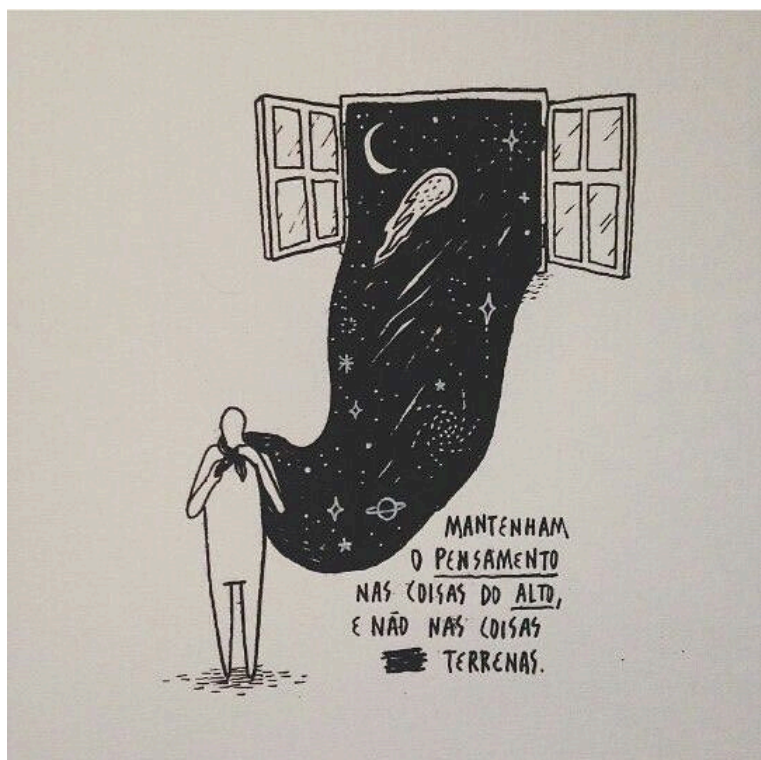 MANTENHAM
O PENSAMENTO
NAS COISAS DO ALTO,
E NÃO NAS COISAS
TERRENAS.